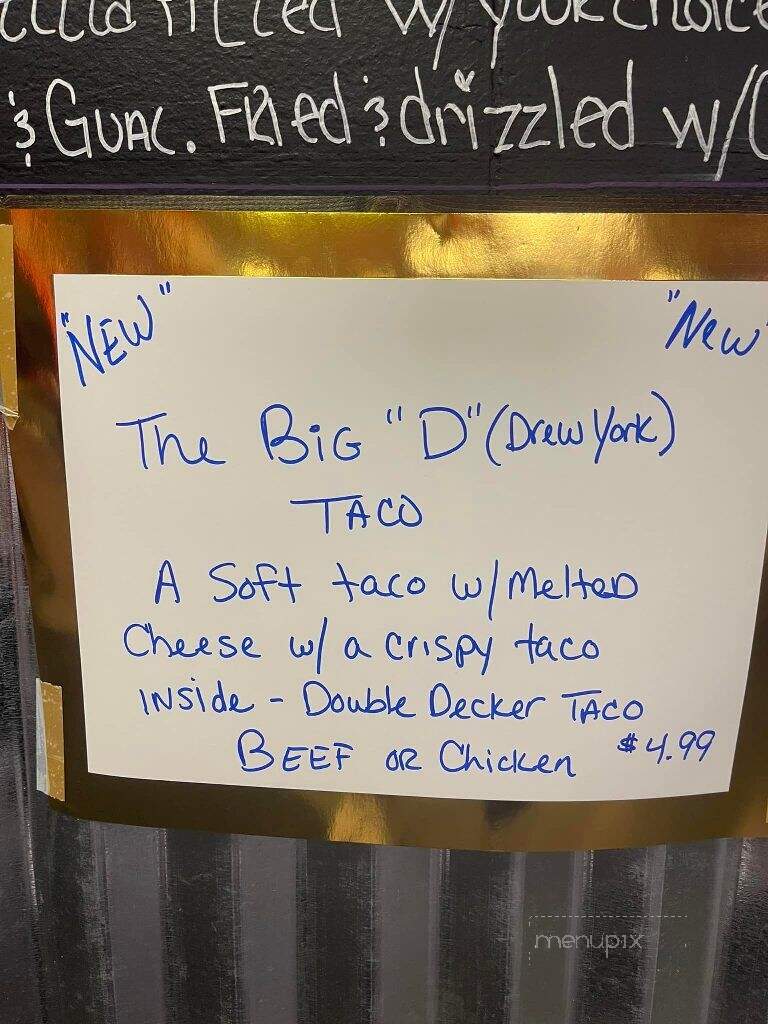 filled w/ your choice
& GUAC. FRIED & drizzled w/
"NEW" "New"
The BIG "D" (Drew York)
TACO
A Soft taco w/ Melted
Cheese w/ a crispy taco
INSide - Double Decker TACO
BEEF OR Chicken $4.99
menupix